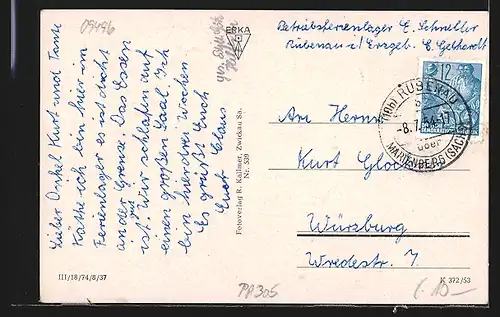 09496
ERKA
Betriebsferienlager E. Schneller
Rübenau i/ Erzgeb. E. Gebhardt
Lieber Onkel Kurt und Tante
Käthe ich bin hier im
Ferienlager es ist dicht
an der Grenze. Das Essen
ist gut. Wir schlafen auf
einen großen Saal. Ich
bin hier drei Wochen
Es grüßt Euch
Euer Claus
12
RÜBENAU
-8.7.54-17
über
MARIENBERG (SACHS)
An Herrn
Kurt
Würzburg
Wredestr. 7
Fotoverlag R. Kallmer, Zwickau Sa.
Nr. 539
III/18/74/8/37
K 372/53
PP305